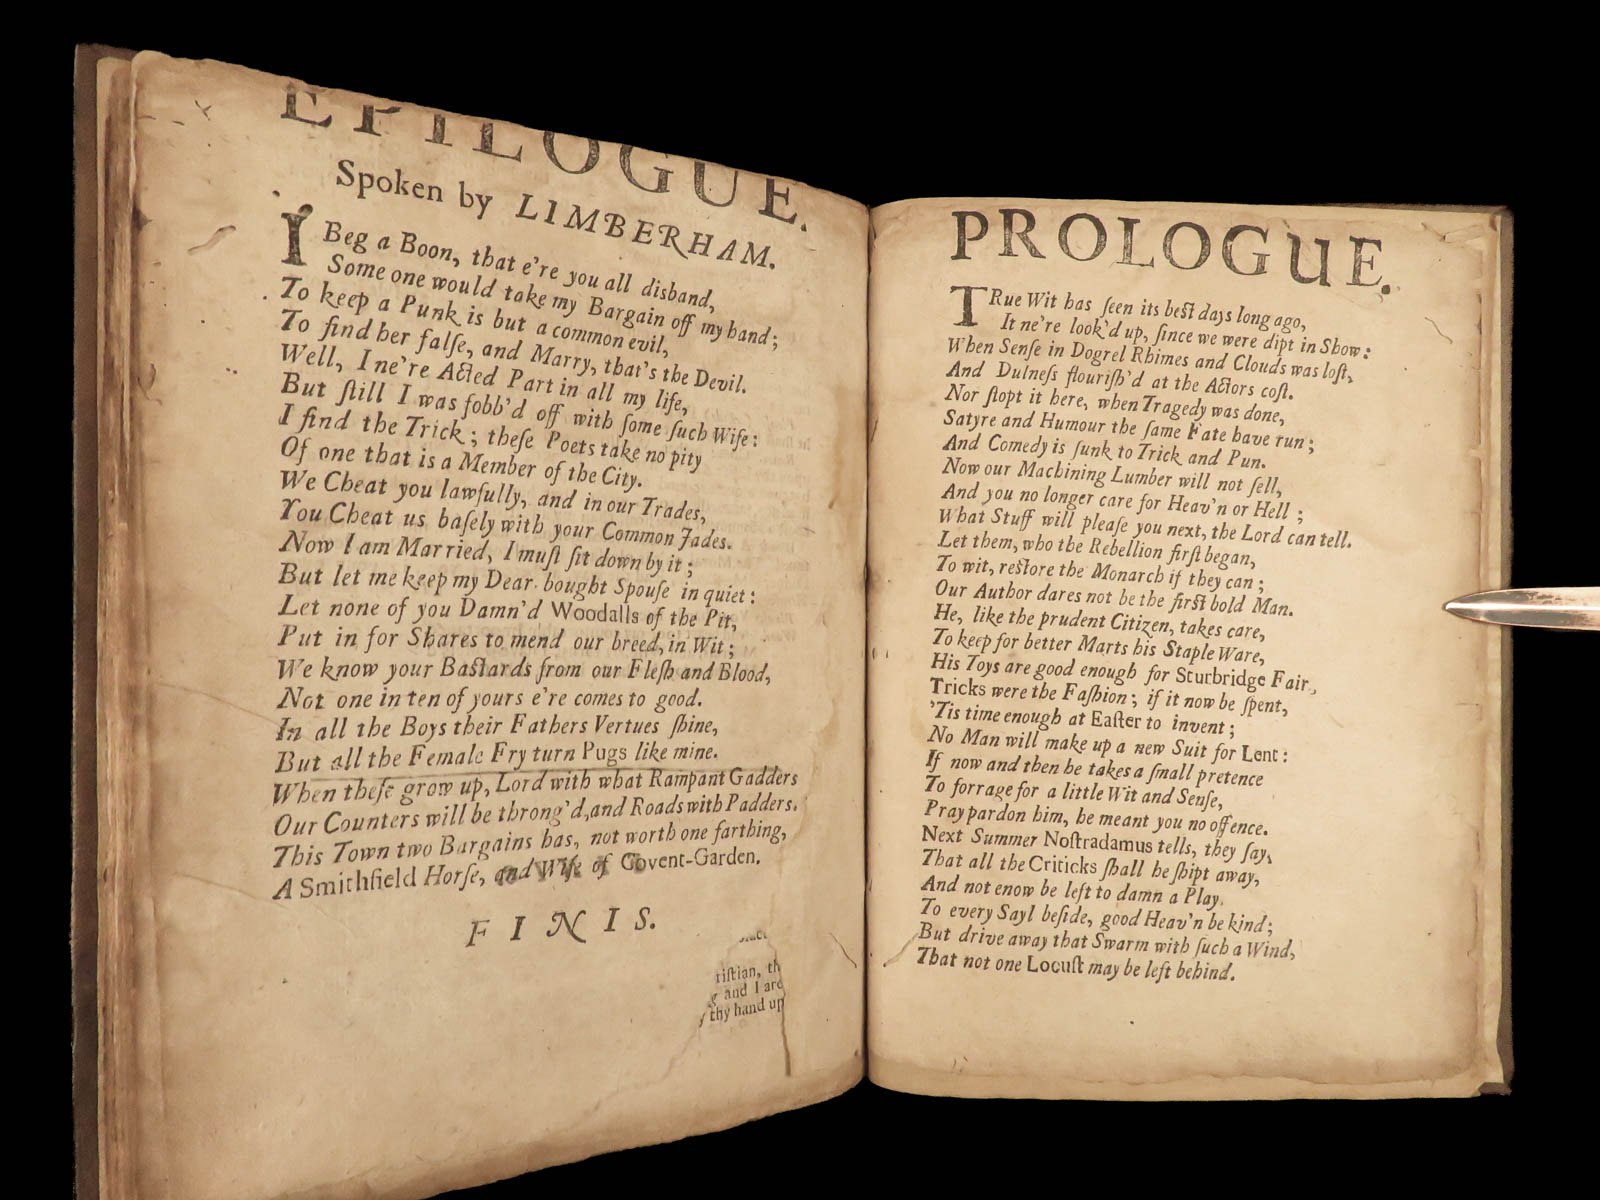 EPILOGUE.
Spoken by LIMBERHAM.
I Beg a Boon, that e're you all disband,
Some one would take my Bargain off my hand;
To keep a Punk is but a common evil,
To find her falſe, and Marry, that's the Devil.
Well, I ne're Acted Part in all my life,
But ſtill I was fobb'd off with ſome ſuch Wife:
I find the Trick; theſe Poets take no pity
Of one that is a Member of the City.
We Cheat you lawfully, and in our Trades,
You Cheat us baſely with your Common Jades.
Now I am Married, I muſt ſit down by it;
But let me keep my Dear-bought Spouſe in quiet:
Let none of you Damn'd Woodalls of the Pit,
Put in for Shares to mend our breed, in Wit;
We know your Baſtards from our Fleſh and Blood,
Not one in ten of yours e're comes to good.
In all the Boys their Fathers Vertues ſhine,
But all the Female Fry turn Pugs like mine.
When theſe grow up, Lord with what Rampant Gadders
Our Counters will be throng'd, and Roads with Padders.
This Town two Bargains has, not worth one farthing,
A Smithfield Horſe, and Wife of Covent-Garden.
FINIS.
riſtian, th
g and I are
thy hand up
PROLOGUE.
TRue Wit has ſeen its beſt days long ago,
It ne're look'd up, ſince we were dipt in Show:
When Senſe in Dogrel Rhimes and Clouds was loſt,
And Dulneſs flouriſh'd at the Actors coſt.
Nor ſtopt it here, when Tragedy was done,
Satyre and Humour the ſame Fate have run;
And Comedy is ſunk to Trick and Pun.
Now our Machining Lumber will not ſell,
And you no longer care for Heav'n or Hell;
What Stuff will pleaſe you next, the Lord can tell.
Let them, who the Rebellion firſt began,
To wit, reſtore the Monarch if they can;
Our Author dares not be the firſt bold Man.
He, like the prudent Citizen, takes care,
To keep for better Marts his Staple Ware,
His Toys are good enough for Sturbridge Fair,
Tricks were the Faſhion; if it now be ſpent,
'Tis time enough at Eaſter to invent;
No Man will make up a new Suit for Lent:
If now and then he takes a ſmall pretence
To forrage for a little Wit and Senſe,
Pray pardon him, he meant you no offence.
Next Summer Noſtradamus tells, they ſay,
That all the Criticks ſhall be ſhipt away,
And not enow be left to damn a Play.
To every Sayl beſide, good Heav'n be kind;
But drive away that Swarm with ſuch a Wind,
That not one Locuſt may be left behind.